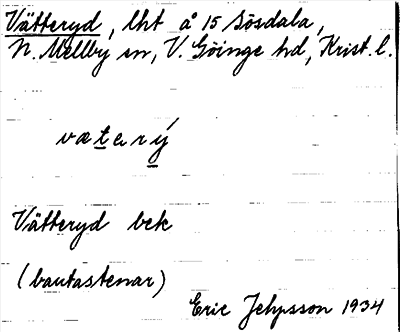 Vätteryd, lht å 15 Sösdala,
N. Mellby sn, V. Göinge hd, Krist. l.
væterý
Vätteryd bek
(bautastenar)
Eric Jehpsson 1934